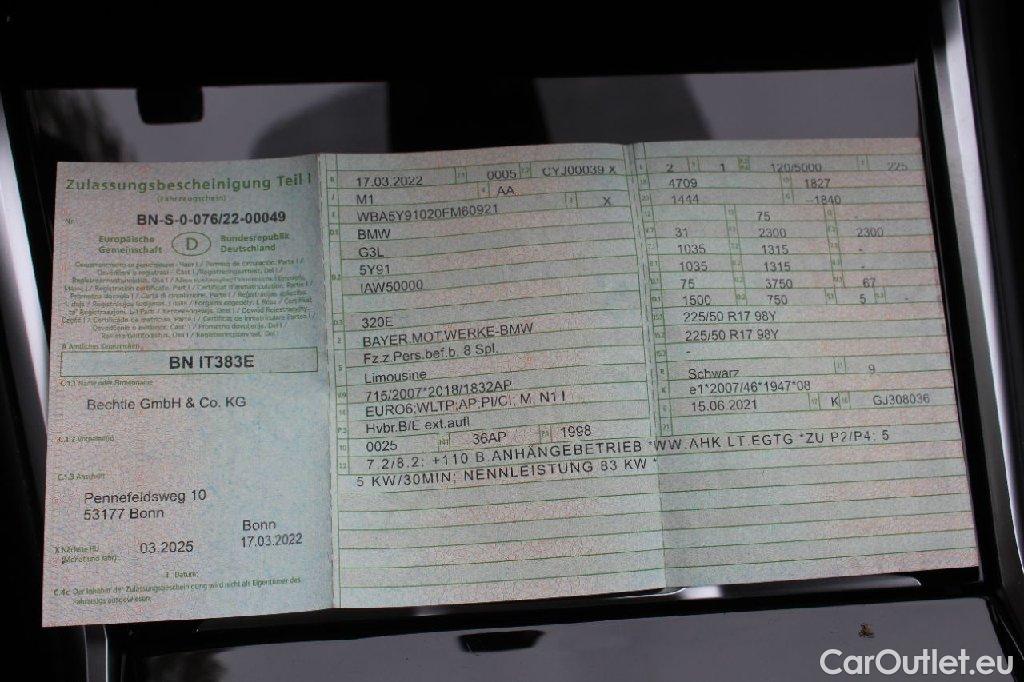 Zulassungsbescheinigung Teil I
(Fahrzeugschein)
Nr. BN-S-0-076/22-00049
Europäische Gemeinschaft
D
Bundesrepublik Deutschland
BN IT383E
C.1.1 Name oder Firmenname
Bechtle GmbH & Co. KG
C.1.2 Vorname(n)
C.1.3 Anschrift
Pennefeldsweg 10
53177 Bonn
Bonn
03.2025
17.03.2022
C.4c Der Inhaber der Zulassungsbescheinigung wird nicht als Eigentümer des
Fahrzeugs ausgewiesen.
17.03.2022 0005 CYJ00039 X
M1 AA
WBA5Y91020FM60921 X
BMW
G3L
5Y91
IAW50000
320E
BAYER.MOT.WERKE-BMW
Fz.z.Pers.bef.b. 8 Spl.
Limousine
715/2007*2018/1832AP
EURO6;WLTP;AP;PI/CI; M, N1 I
Hybr.B/E ext.aufl
0025 36AP 1998
7.2/8.2: +110 B.ANHÄNGEBETRIEB *WW.AHK LT.EGTG *ZU P2/P4: 5
5 KW/30MIN; NENNLEISTUNG 83 KW *
2 1 120/5000 225
4709 1827
1444 -1840
75
31 2300 2300
1035 1315 -
1035 1315 -
75 3750 67
1500 750 5
225/50 R17 98Y
225/50 R17 98Y
-
Schwarz 9
e1*2007/46*1947*08
15.06.2021 K GJ308036
CarOutlet.eu